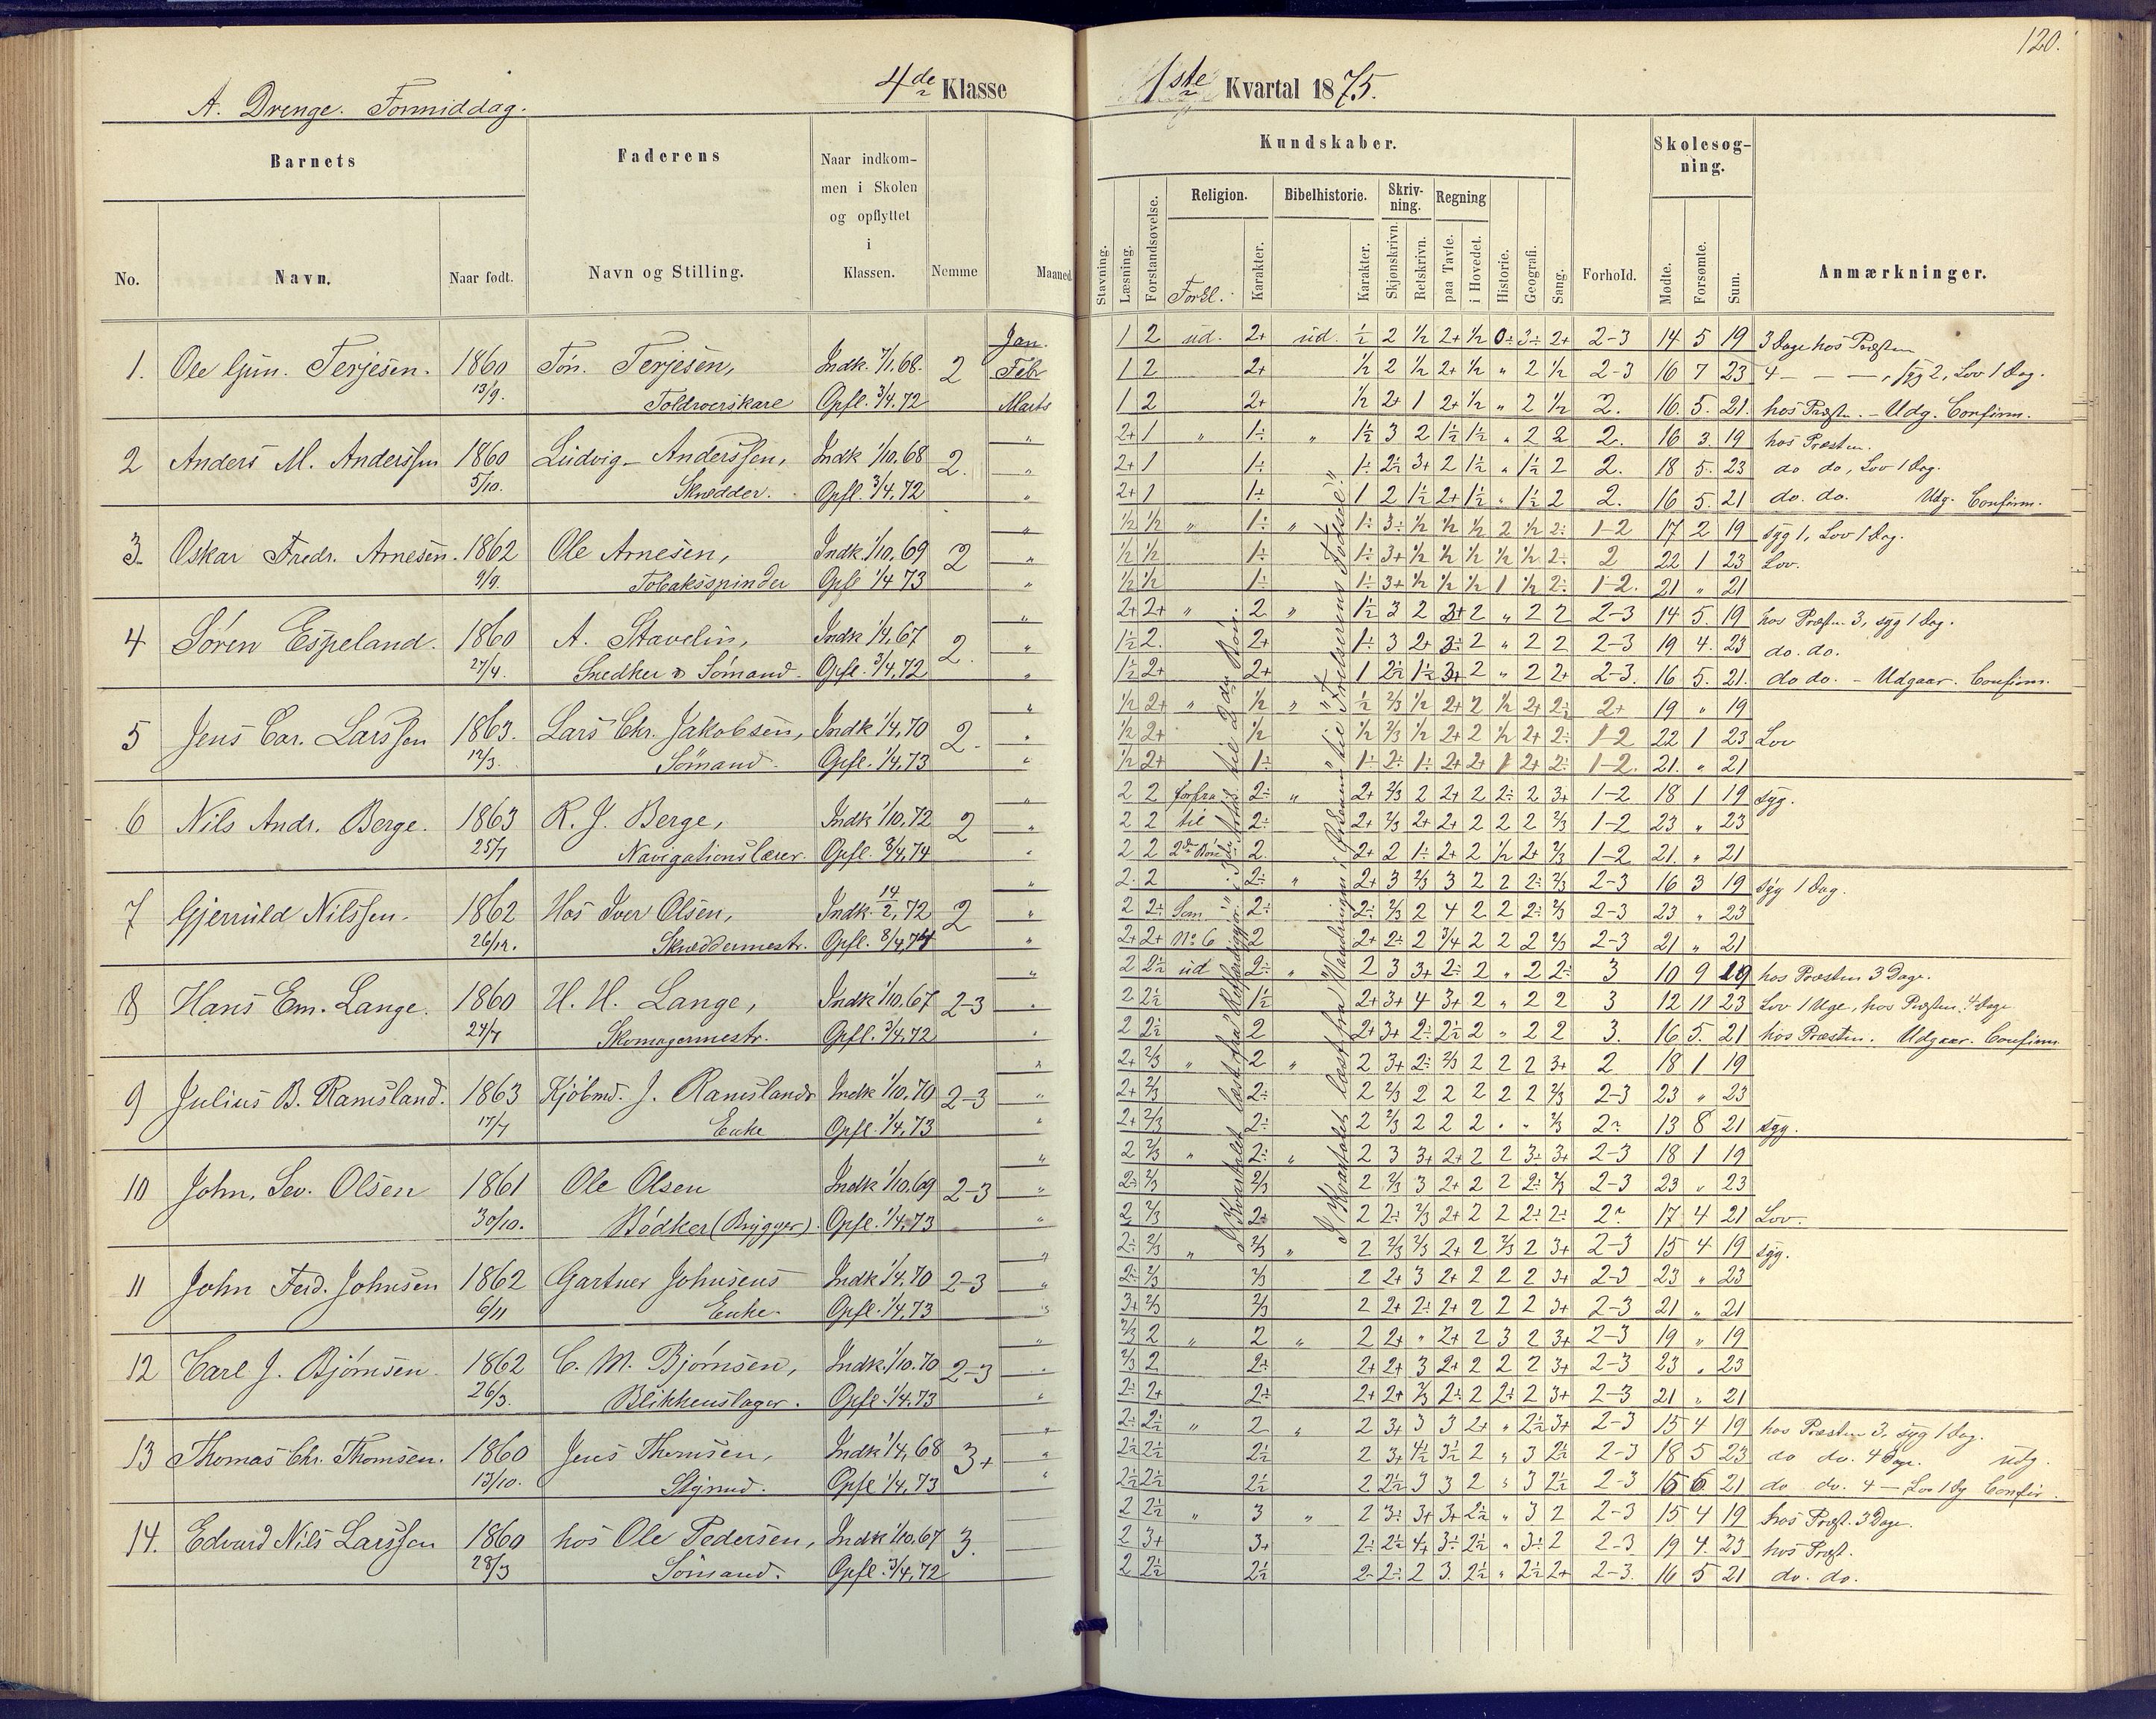 120.
A. Drenge. Formiddag.
4de Klasse
1ste Kvartal 1875.
Barnets
Faderens
Naar indkom-
men i Skolen
og opflyttet
i
Klassen.
Kundskaber.
Skolesøg-
ning.
No.
Navn.
Naar født.
Navn og Stilling.
Nemme
Maaned.
Stavning.
Læsning.
Forstandsøvelse.
Religion.
Forkl.
Karakter.
Bibelhistorie.
Karakter.
Skriv-
ning.
Skjønskrivn.
Retskrivn.
Regning
paa Tavle.
i Hovedet.
Historie.
Geografi.
Sang.
Forhold.
Mødte.
Forsømte.
Sum.
Anmærkninger.
Jan. 1 2 ud. 2+ ud. ½ 2 ½ 2+ ½ 0÷ 3÷ 2+ 2-3 14 5 19 3 Dage hos Præsten
1. Ole Gun. Terjesen. 1860 Tøn. Terjesen, Indk 7/1.68. 2 Febr 1 2 2+ ½ 2 ½ 2+ ½ " 2 ½ 2-3 16 7 23 4 — — —, syg 2, Lov 1 Dag.
13/9. Toldroerskarl Opfl. 3/4.72 Marts 1 2 2+ ½ 2+ 1 2+ ½ " 2 ½ 2. 16. 5. 21. hos Præsten. - Udg. Confirm.
" 2+ 1 " 1÷ " 1½ 3 2 1½ 1½ " 2 2 2. 16 3. 19 hos Præsten.
2 Anders M. Anderssen 1860 Ludvig Anderssen, Indk 1/10.68 2. " 2+ 1 1÷ 1÷ 2½ 3+ 2 1½ " 1½ 2 2. 18 5. 23 do do, Lov 1 Dag.
5/10. Skrædder. Opfl. 3/4.72 " 2+ 1 1÷ 1 2 1½ 2+ 1½ " 1½ 2 2. 16 5. 21 do. do. Udg. Confirm.
" ½ ½ " 1÷ " 1÷ 3÷ ½ ½ ½ 2 ½ 2÷ 1-2 17 2 19 syg 1, Lov 1 Dag.
3. Oskar Fredr. Arnesen. 1862 Ole Arnesen, Indk 1/10.69 2 " ½ ½ 1÷ 1÷ 3+ ½ ½ ½ ½ ½ 2÷ 2 22 1 23 Lov.
9/9. Tobaksspinder Opfl 1/4 73 " ½ ½ 1÷ 1÷ 3+ ½ ½ ½ 1 ½ 2÷ 1-2. 21 " 21
" 2+ 2+ " 2 " 1½ 3 2 3+ 2 " 2 2 2-3 14 5. 19 hos Præsten 3, syg 1 Dag.
4 Søren Espeland. 1860 A. Stavelin, Indk 1/4.67 2. " 1½ 2. 2+ 1÷ 3 2+ 3÷ 2 " 2 2 2-3 19 4. 23 do. do.
27/4. Snedker & Sømand. Opfl. 3/4.72 " 1½ 2+ 2+ 1 2½ 1½ 3+ 2 " 2 2+ 2-3. 16 5. 21. do do. - Udgaar. Confirm.
" ½ 2+ " ½ " ½ 2/3 ½ 2+ 2 ½ 2+ 2½ 2+ 19 " 19
5 Jens Car. Larssen 1863. Lars Chr. Jakobsen, Indk 1/4.70 2. " ½ 2+ ½ ½ 2/3 ½ 2+ 2 ½ 2+ 2÷ 1-2 22 1 23 Lov
12/3. Sømand. Opfl. 1/4.73 " ½ 2+ 1÷ 1÷ 2÷ 1÷ 2+ 2+ 1 2+ 2÷ 1-2. 21. " 21
" 2 2 forfra 2÷ " 2+ 2/3 2 2+ 2 2÷ 2 3+ 1-2 18 1 19 syg.
6 Nils Andr. Berge. 1863 R. J. Berge, Indk 1/10.72 2 " 2 2 til 2÷ 2+ 2/3 2+ 2+ 2 2 2 2/3 1-2 23 " 23
25/7 Navigationslærer. Opfl. 8/4.74 " 2 2 2den Bøn 2. 2+ 2 1÷ 2+ 2 ½ 2+ 2/3 1-2 21. " 21
" 2. 2 2÷ " 2+ 3 2/3 3 2 2 2÷ 2/3 2-3 16 3 19 syg 1 Dag.
7 Gjerruld Nilssen. 1862 Hos Iver Olsen, Indk. 14/2.72 2 " 2 2÷ Som 2÷ 2÷ 2/3 2 4 2 2 2÷ 2/3 2-3 23 " 23
26/12. Skræddermestr. Opfl. 8/4.74 " 2+ 2+ No 6 2 2+ 2÷ 2 3/4 2 2 2 2/3 2-3 21 " 21
" 2 2½ ud 2÷ " 2 3 3+ 2÷ 2 " 2 2÷ 3 10 9 19 hos Præsten 3 Dage.
8 Hans Em. Lange. 1860 H. H. Lange, Indk 1/10.67 2-3 " 2 2½ 1½ 2+ 3+ 4 3+ 2 " 2 2 3 12 11 23 Lov 1 Uge, hos Præsten 4 Dage
24/7 Skomagermestr. Opfl. 3/4.72 " 2 2½ 2 2+ 3+ 2÷ 2½ 2 " 2 2 3. 16 5. 21 hos Præsten. Udgaar. Confirm
" 2+ 2/3 " 2 " 2 3+ 2÷ 2/3 2 2 2 3+ 2 18 1 19
9 Julius B. Ramsland. 1863 Kjøbmd. J. Ramslands Indk 1/10.70 2-3 " 2+ 2/3 2÷ 2 2/3 2 2 2 2 2 2/3 2-3 23 " 23
17/7 Enke Opfl. 1/4.73 " 2+ 2/3 2÷ 2 2/3 2 2 2 " " 2/3 2? 13 8 21 syg.
" 2 2/3 " 2÷ " 2 3 3+ 2+ 2 2 3÷ 3+ 2-3 18 1 19
10 John. Sev. Olsen 1861 Ole Olsen Indk 1/10.69 2-3 " 2÷ 2/3 2/3 2 2/3 3 2+ 2 2 2÷ 2/3 2-3 23 " 23
30/10. Bødker (Brygger). Opfl. 1/4.73 " 2 2/3 2÷ 2 2÷ 2/3 2+ 2 2 2÷ 2÷ 2? 17 4 21 Lov.
" 2÷ 2/3 " 2/3 " 2 2/3 2/3 2+ 2 2/3 2 3+ 2-3 15 4 19 syg.
11 John Ferd. Johnsen 1862 Gartner Johnsens Indk 1/4.70 2-3 " 2÷ 2/3 2/3 2 2+ 3 2+ 2 2 2 3+ 2-3 23 " 23
6/11 Enke. Opfl. 1/4.73 " 3+ 2/3 2/3 2 2+ 2÷ 2+ 2 2 2 3+ 2-3 21 " 21
" 2/3 2 " 2 " 2 2+ " 2+ 2 3 2 3+ 2-3 19 " 19
12 Carl J. Bjørnsen 1862 C. M. Bjørnsen, Indk 1/10.70 2-3 " 2/3 2 2÷ 2+ 2+ 3 2+ 2 2 2 3+ 2-3 23 " 23
26/3. Blikkenslager. Opfl. 1/4.73 " 2÷ 2+ 2÷ 2+ 2+ 2/3 2÷ 2 2÷ 2 3+ 2-3 21 " 21
" 2÷ 2½ " 2 " 2 3+ 3 3 2+ " 2½ 3+ 2-3 15 4 19 hos Præsten 3, syg 1 Dag.
13 Thomas Chr. Thomsen. 1860 Jens Thomsen, Indk 1/4.68 3+ " 2½ 2½ 2½ 2 3+ 4½ 3½ 2 " 3 2½ 2-3 18 5 23 do do. 4 Dage. Udg.
13/10. Styrmd. Opfl 1/4.73 " 2½ 2½ 2½ 2 2½ 3 3 2 " 3 2½ 2-3 15 6 21 do do. 4 — Lov 1 Dg Confir.
2 2½ " 3 " 2 3÷ 3+ 3+ 2½ " 3 2 2-3 15 4 19 hos Præst. 3 Dage.
14. Edvard Nils Larssen 1860 hos Ole Pedersen, Indk 1/10.67 3. 2 3+ 3+ 2÷ 2½ 4+ 3÷ 2½ " 3÷ 2 2-3 19 4. 23 hos Præst.
28/3 Sømand. Opfl. 3/4.72 2 2½ 2½ 2÷ 2÷ 2 3. 2½ " 2½ 2+ 2-3. 16 5 21 do. do.